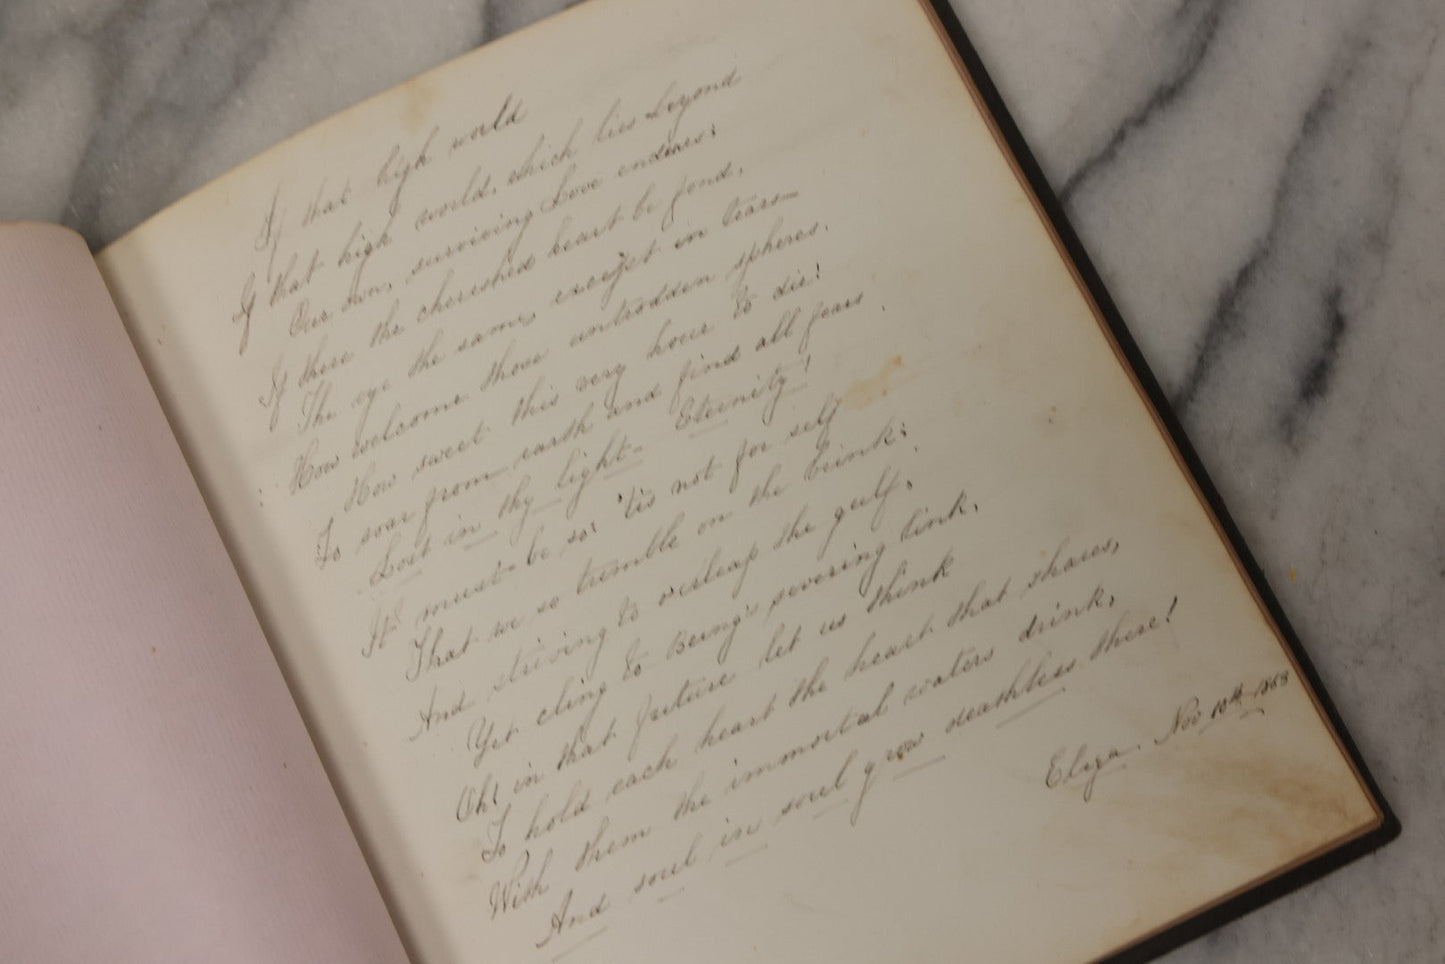 If that high world
If that high world, which lies beyond
Our own, surviving Love endears:
If there the cherished heart be fond,
The eye the same, except in tears—
How welcome those untrodden spheres.
How sweet this very hour to die!
To soar from earth and find all fears
Lost in thy light- Eternity!
It must be so: 'tis not for self
That we so tremble on the brink:
And striving to o'erleap the gulf,
Yet cling to Being's severing link.
Oh! in that future let us think
To hold each heart the heart that shares,
With them the immortal waters drink,
And soul in soul grow deathless there!
Eliza. Nov 10th 1868